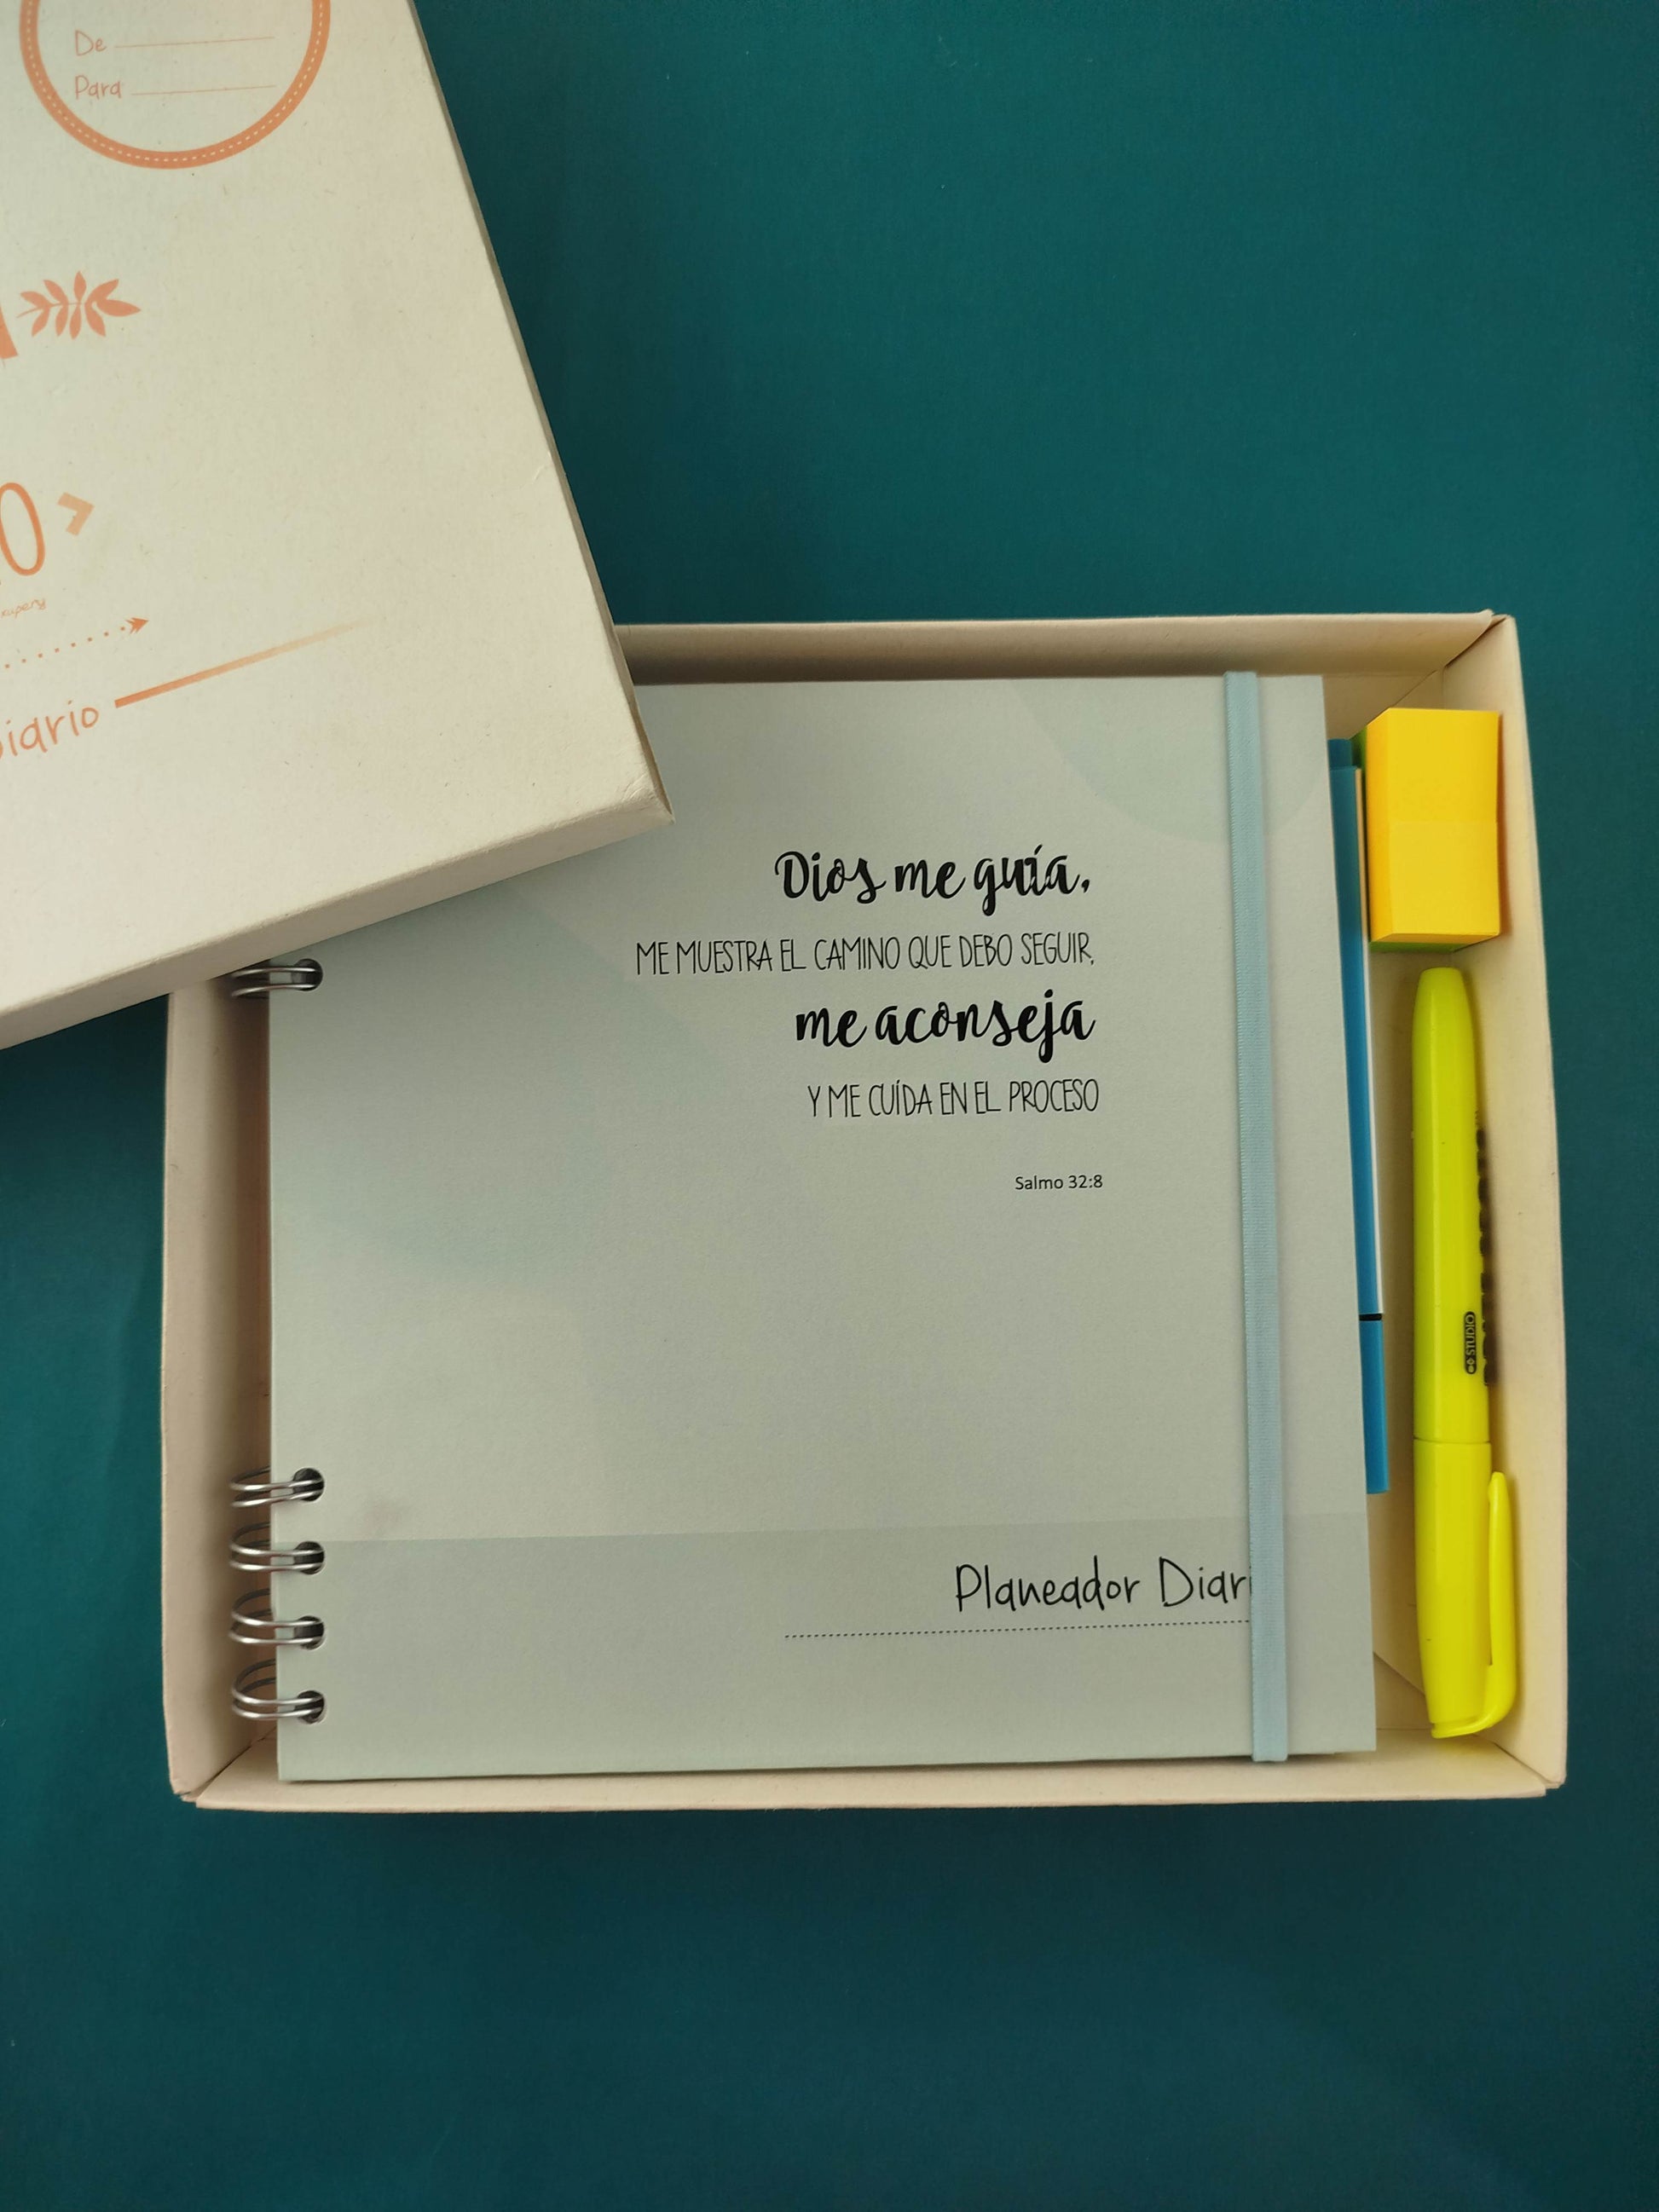 De
Para
Dios me guía,
ME MUESTRA EL CAMINO QUE DEBO SEGUIR,
me aconseja
Y ME CUÍDA EN EL PROCESO
Salmo 32:8
Planeador Diari
STUDIO